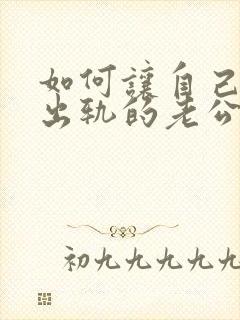 如何讓自己
出轨的老公
初九九九九九